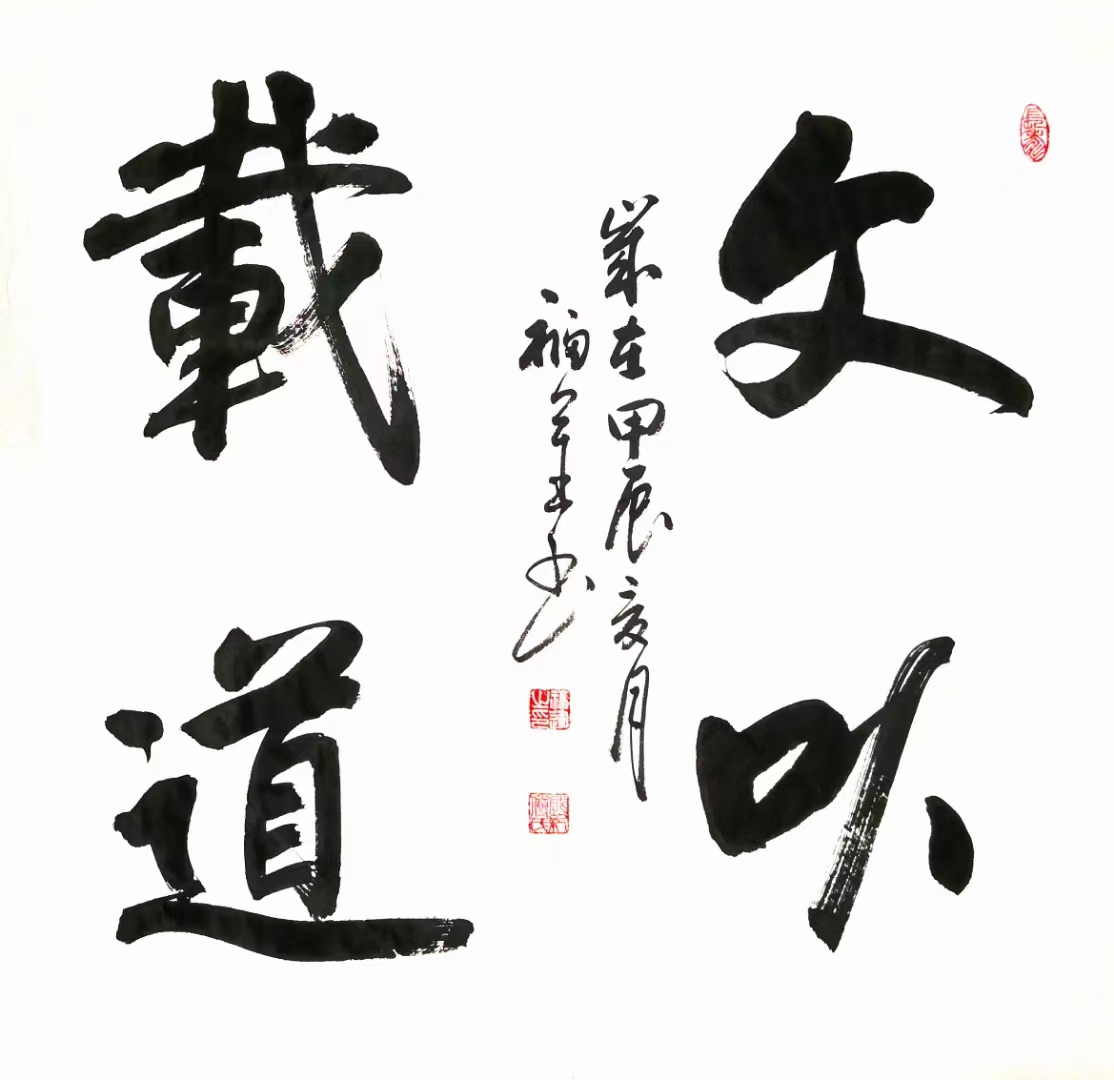 文以
載道
歲在甲辰亥月
福書